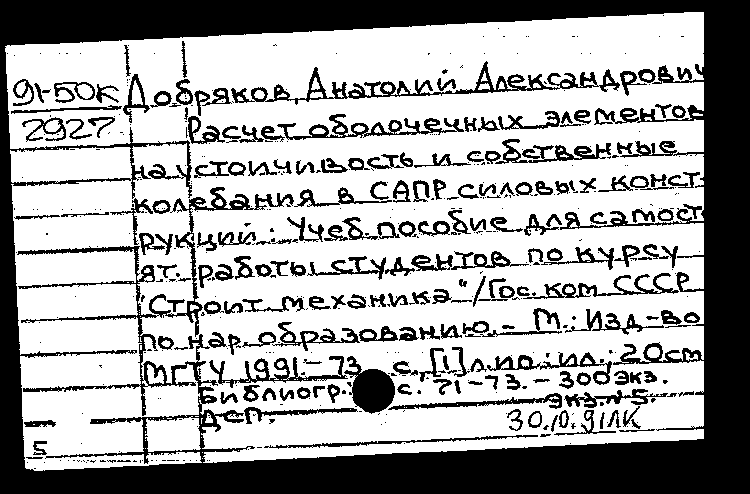 91-50к Добряков, Анатолий Александрович
2927 Расчет оболочечных элементов
на устойчивость и собственные
колебания в САПР силовых конст-
рукций: Учеб. пособие для самост
ят. работы студентов по курсу
"Строит. механика"/Гос. ком СССР
по нар. образованию.- М.: Изд-во
МГТУ, 1991.- 73 с., [1] л. ил.: ил.; 20см
Библиогр.: с. 71-73. - 300экз.
экз.№5.
ДСП.
30.10.91ЛК
5